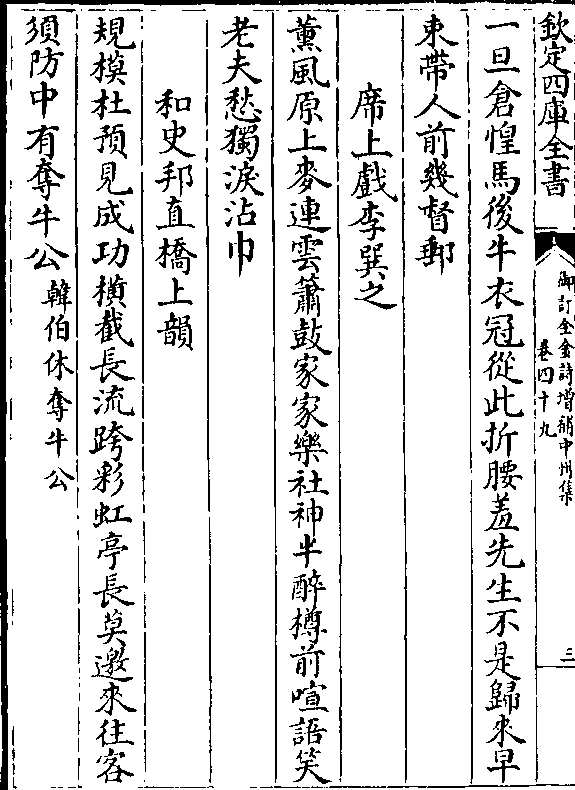 欽定四庫全書
御訂全金詩增補中州集
卷四十九
三
一旦倉惶馬後牛衣冠從此折腰羞先生不是歸來早
束帶人前幾督郵
席上戲李巽之
薰風原上麥連雲簫鼓家家樂社神半醉樽前喧語笑
老夫愁獨淚沾巾
和史邦直橋上韻
規模杜預見成功橫截長流跨彩虹亭長莫邀來往客
須防中有奪牛公韓伯休奪牛公